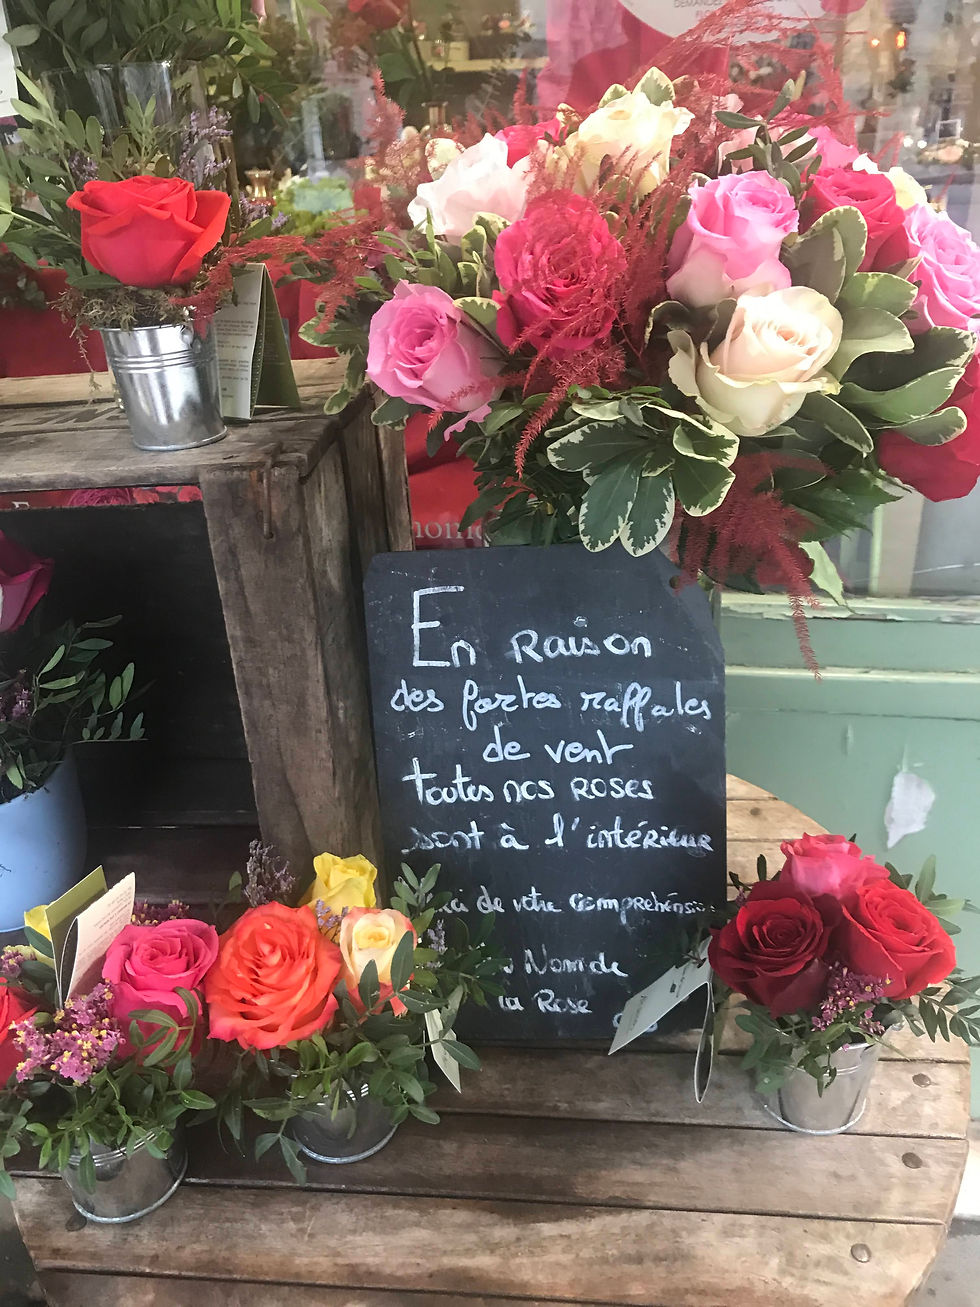 En Raison
des fortes raffales
de vent
toutes nos Roses
sont à l'intérieur
de votre compréhension
Nom de
la Rose